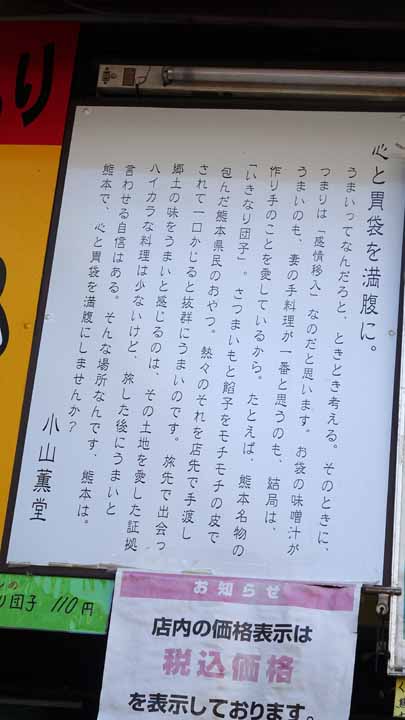 心と胃袋を満腹に。
うまいってなんだろと、ときどき考える。そのときに、
つまりは「感情移入」なのだと思います。お袋の味噌汁が
うまいのも、妻の手料理が一番と思うのも、結局は、
作り手のことを愛しているから。たとえば、熊本名物の
「いきなり団子」。さつまいもと餡子をモチモチの皮で
包んだ熊本県民のおやつ。熱々のそれを店先で手渡し
されて一口かじると抜群にうまいのです。旅先で出会っ
郷土の味をうまいと感じるのは、その土地を愛した証拠
ハイカラな料理は少ないけど、旅した後にうまいと
言わせる自信はある。そんな場所なんです、熊本は。
熊本で、心と胃袋を満腹にしませんか？
小山薫堂
り
り団子 110円
お知らせ
店内の価格表示は
税込価格
を表示しております。